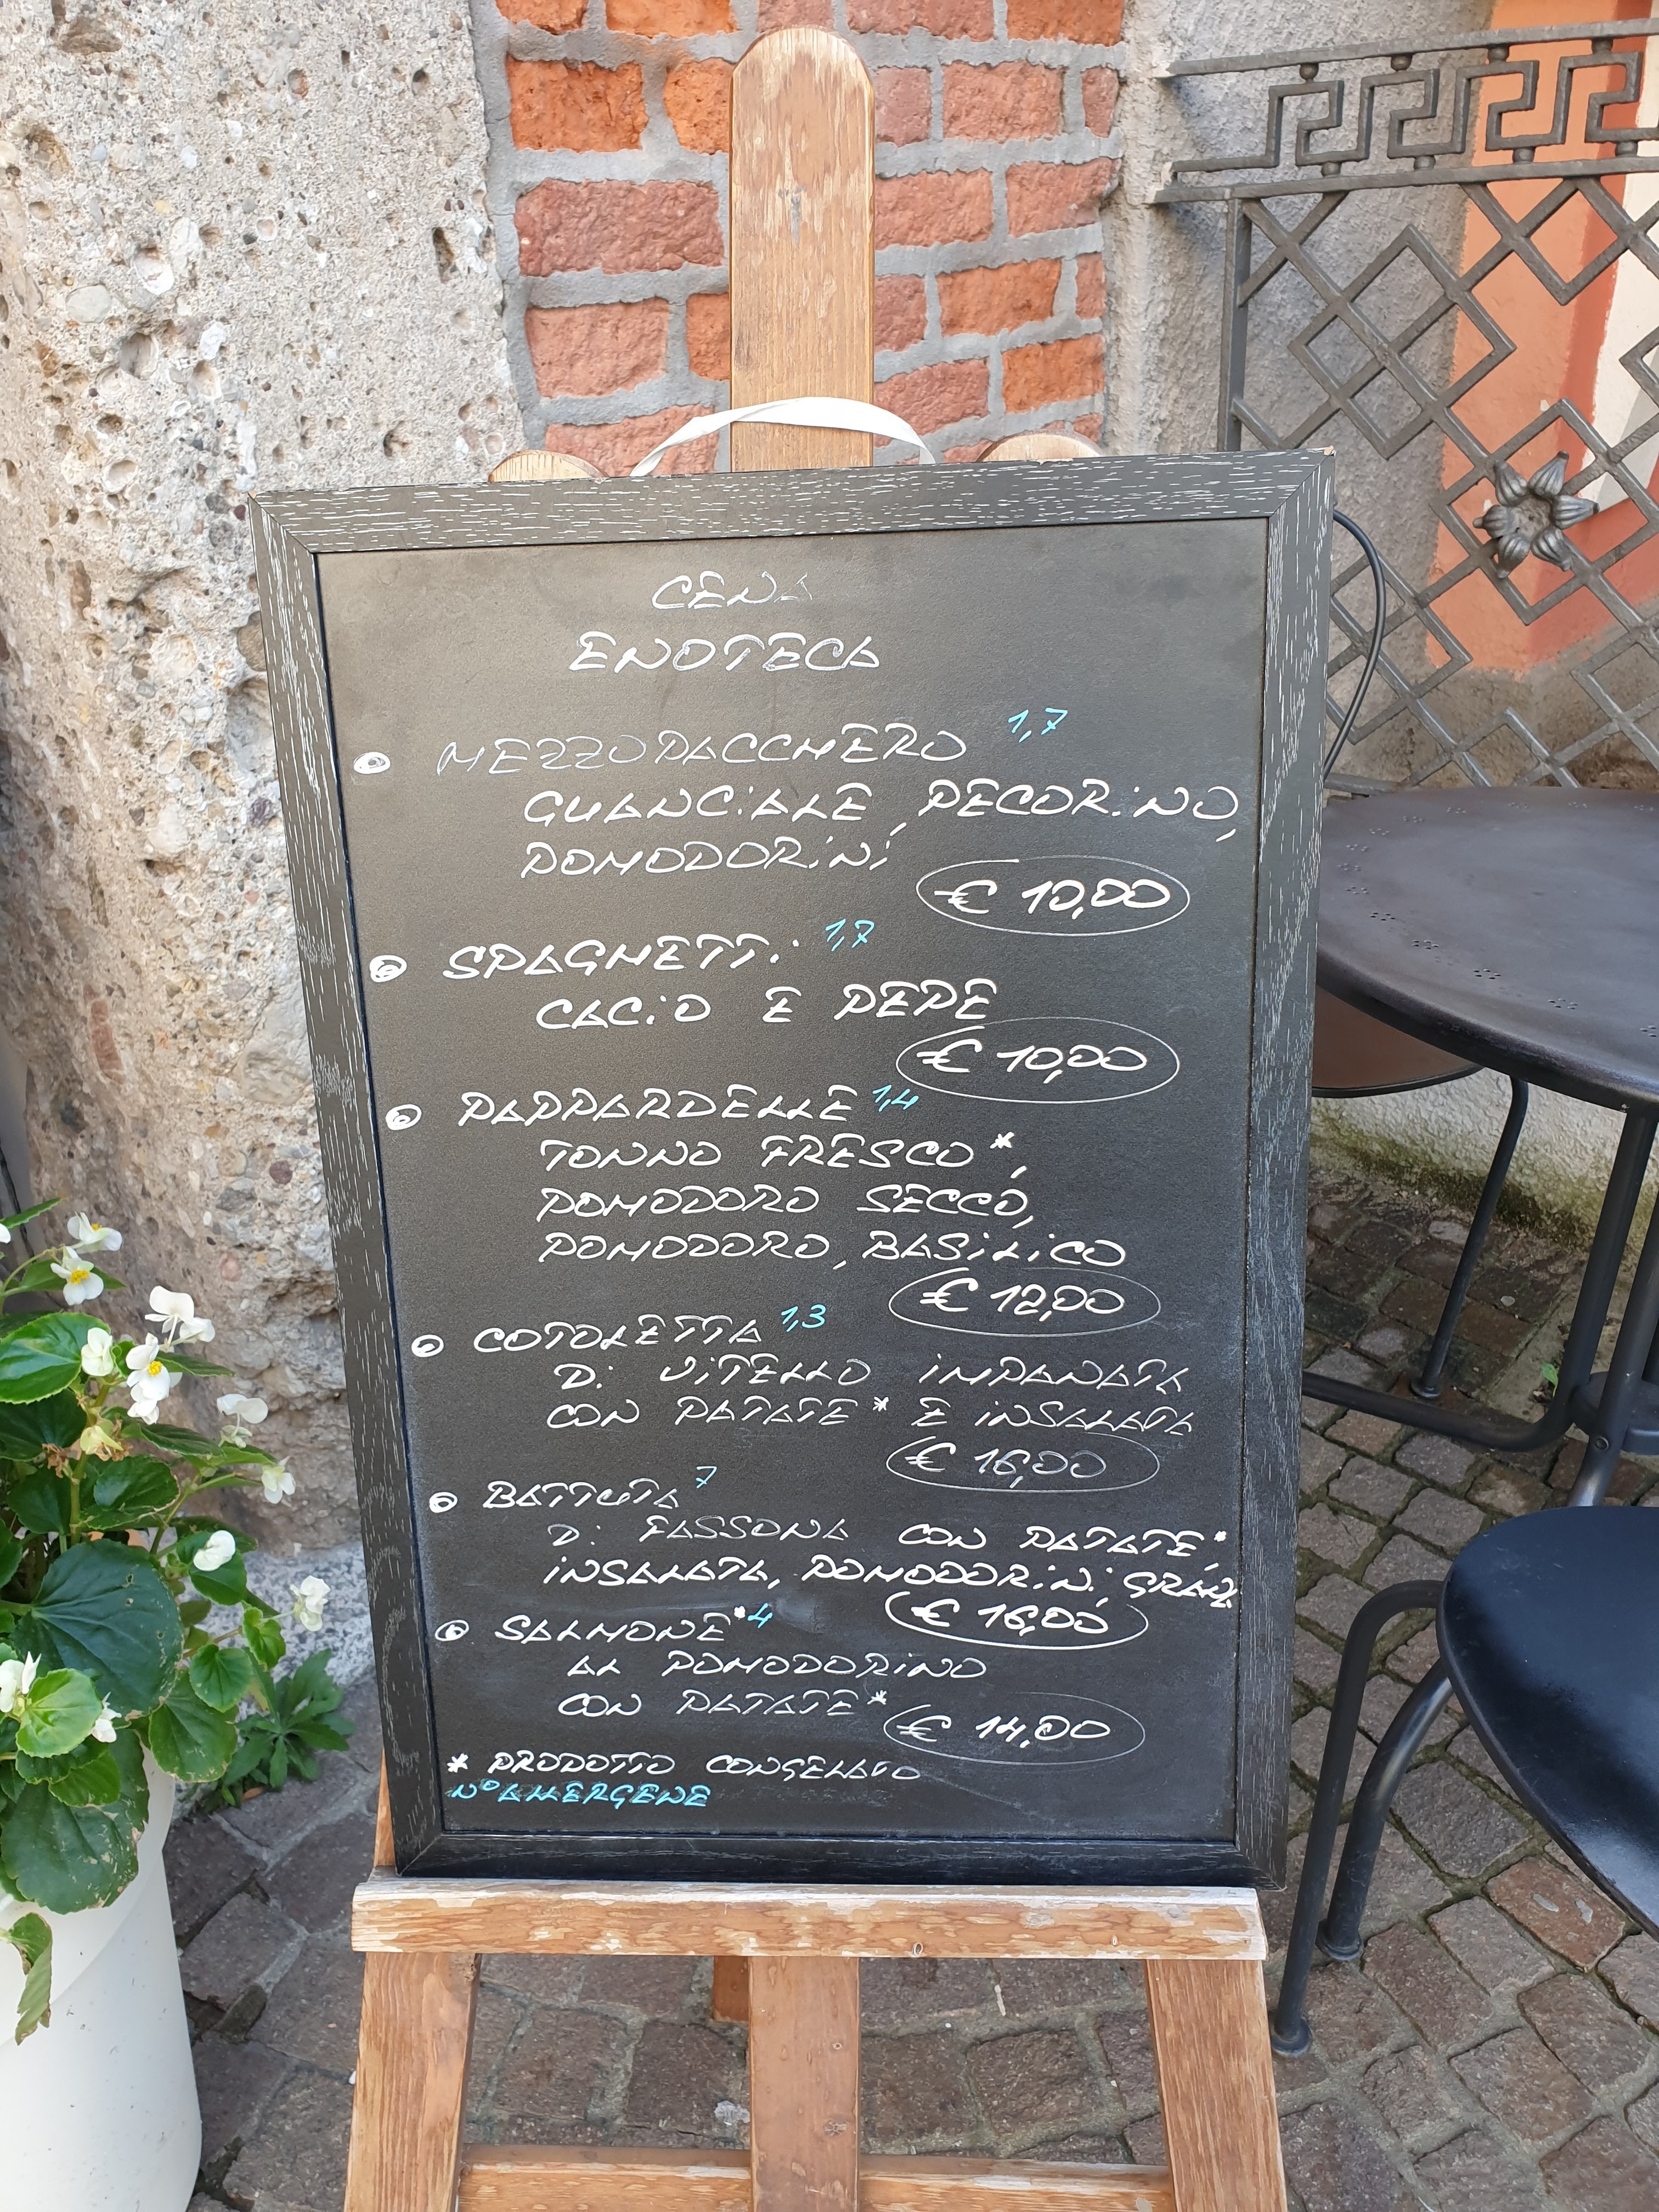 CENA
ENOTECA
MEZZOPACCHERO 1,7
GUANCIALE, PECORINO,
POMODORINI
€ 10,00
SPAGHETTI 1,7
CACIO E PEPE
€ 10,00
PAPPARDELLE 1,4
TONNO FRESCO*,
POMODORO SECCO,
POMODORO, BASILICO
€ 12,00
COTOLETTA 1,3
DI VITELLO IMPANATA
CON PATATE* E INSALATA
€ 16,00
BATTUTA 7
DI FASSONA CON PATATE*,
INSALATA, POMODORINI,
€ 16,00
SALMONE*4
AL POMODORINO
CON PATATE*
€ 14,00
* PRODOTTO CONGELATO
N° ALLERGENE